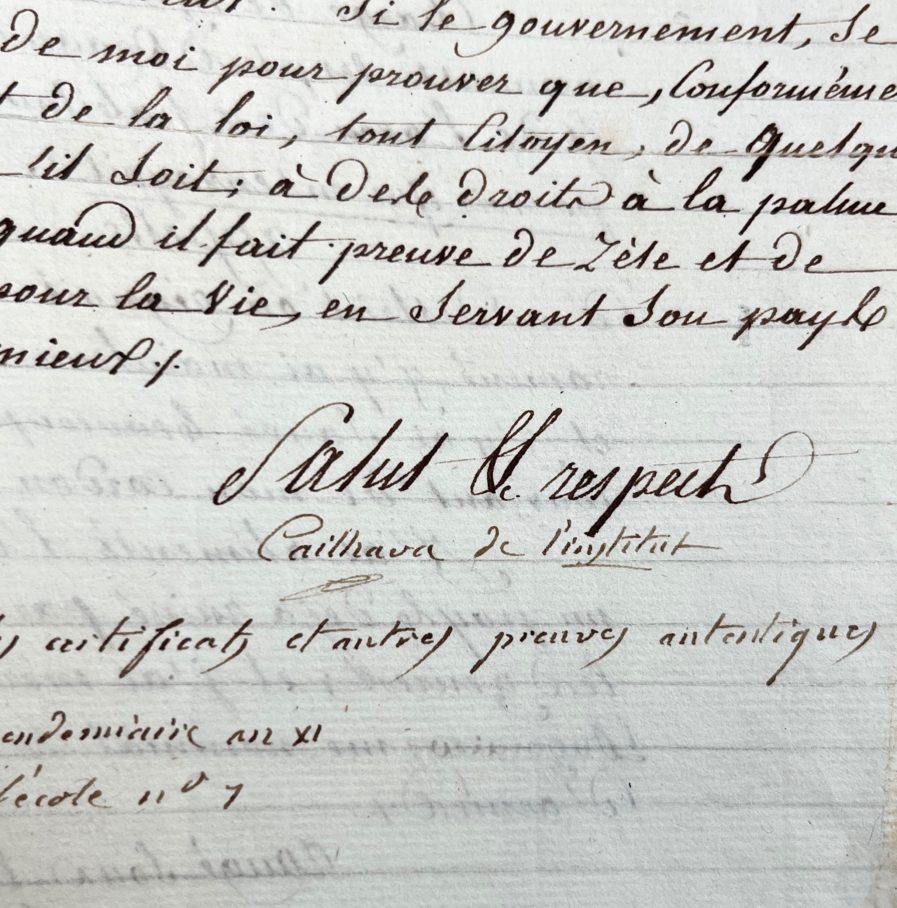 Si le gouvernement, se
de moi pour prouver que, Conforméme
de la loi, tout Citoyen, de quelqu
'il soit; à des droits à la palme
quand il fait preuve de Zéle et de
pour la Vie, en servant son pays
mieux ./.
Salut & respect
Cailhava de l'institut
certificats et autres preuves autentiques
endemiaire an XI
l'écote n° 7